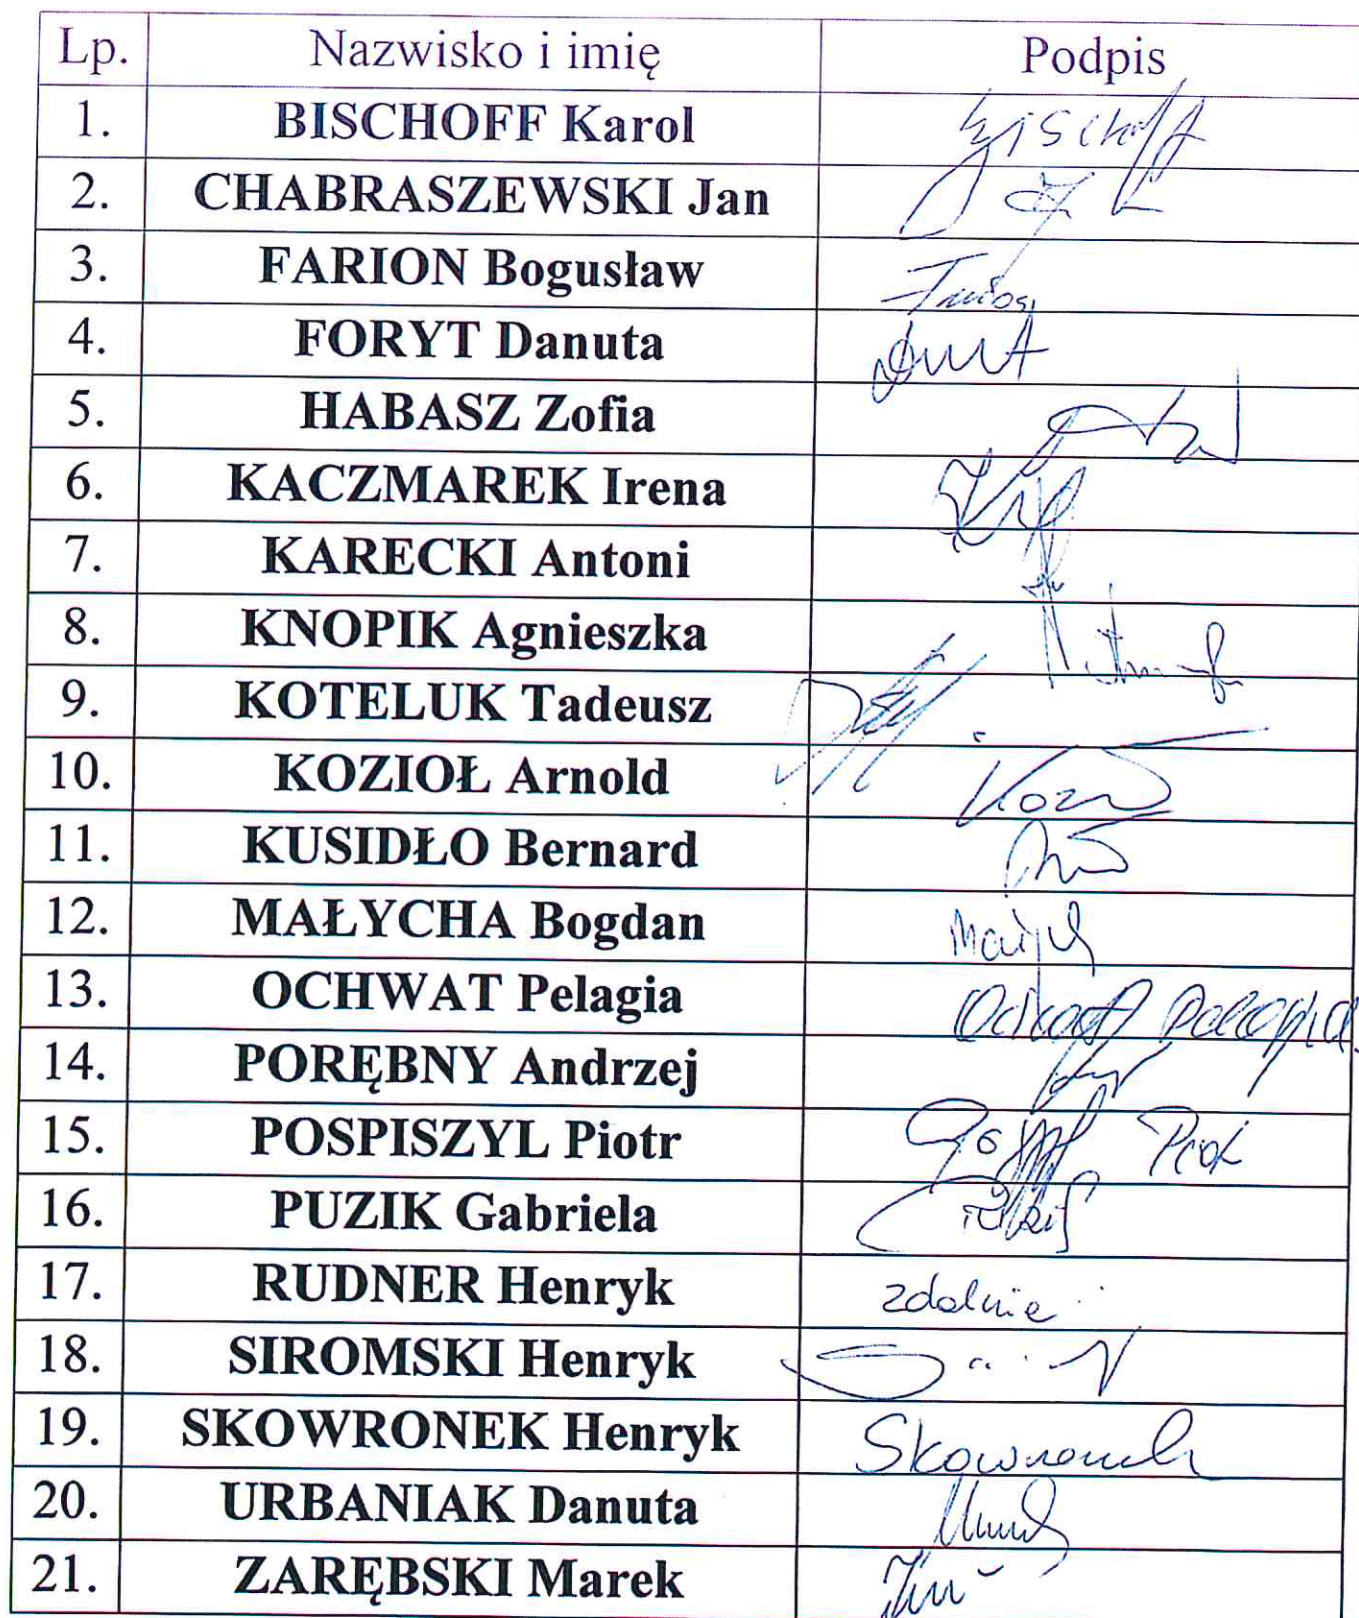 Lp. Nazwisko i imię Podpis
1. BISCHOFF Karol Bischoff
2. CHABRASZEWSKI Jan
3. FARION Bogusław
4. FORYT Danuta
5. HABASZ Zofia
6. KACZMAREK Irena
7. KARECKI Antoni
8. KNOPIK Agnieszka
9. KOTELUK Tadeusz
10. KOZIOŁ Arnold
11. KUSIDŁO Bernard
12. MAŁYCHA Bogdan
13. OCHWAT Pelagia Ochwat Pelagia
14. PORĘBNY Andrzej
15. POSPISZYL Piotr
16. PUZIK Gabriela
17. RUDNER Henryk zdalnie
18. SIROMSKI Henryk
19. SKOWRONEK Henryk Skowronek
20. URBANIAK Danuta
21. ZARĘBSKI Marek